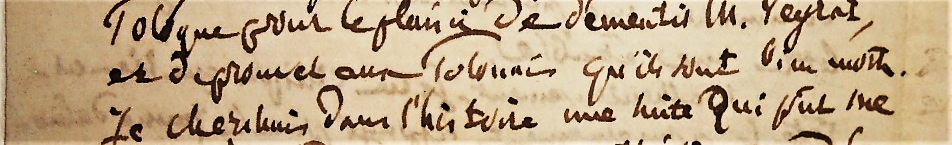 Pologne pour le plaisir de démentir M. Peyrat,
et de prouver aux Polonais qu'ils sont bien morts.
Je cherchais dans l'histoire une suite qui pût me